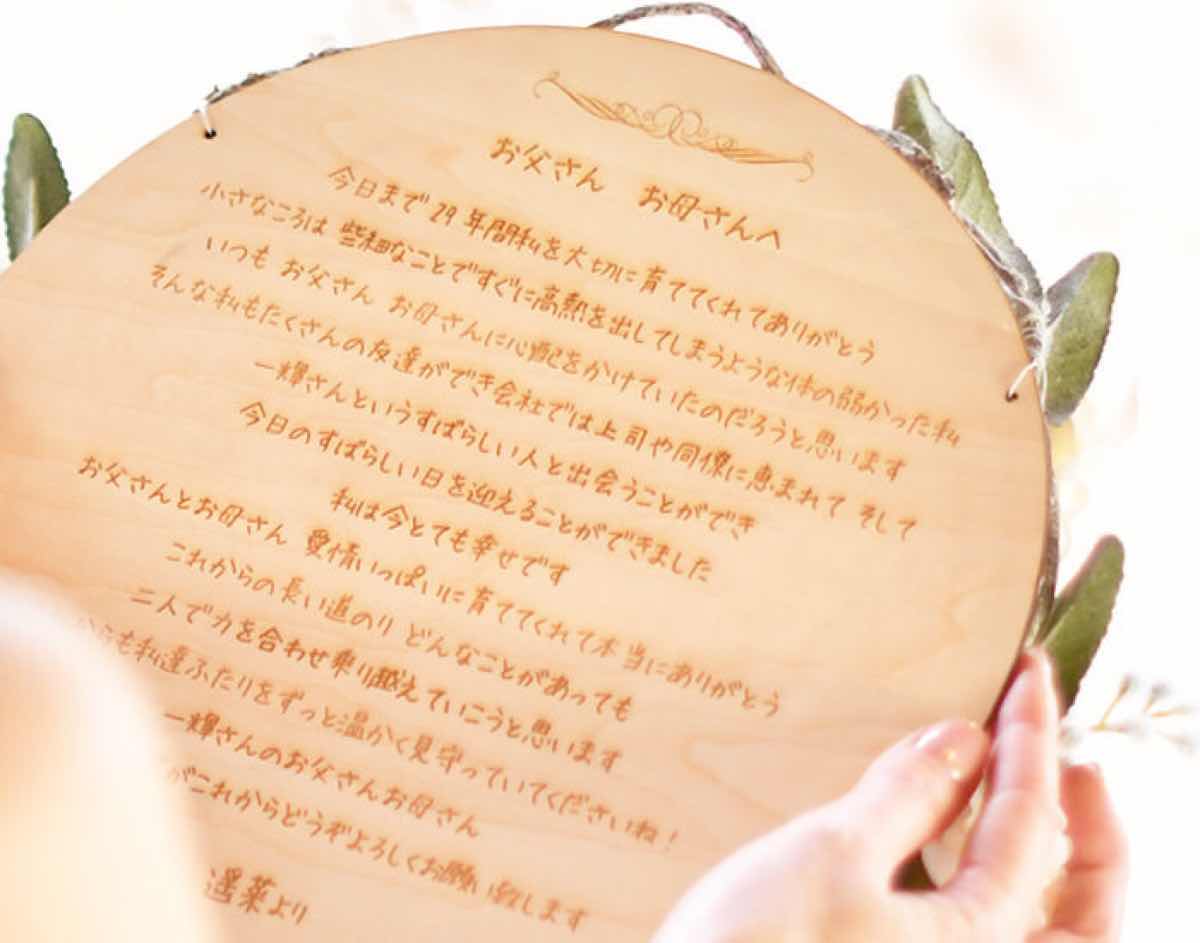 お父さん お母さんへ
今日まで29年間私を大切に育ててくれてありがとう
小さなころは 些細なことですぐに高熱を出してしまうような体の弱かった私
いつも お父さん お母さんに心配をかけていたのだろうと思います
そんな私もたくさんの友達ができ会社では上司や同僚に恵まれて そして
一輝さんというすばらしい人と出会うことができ
今日のすばらしい日を迎えることができました
私は今とても幸せです
お父さんとお母さん 愛情いっぱいに育ててくれて本当にありがとう
これからの長い道のり どんなことがあっても
二人で力を合わせ乗り越えていこうと思います
らも私達ふたりをずっと温かく見守っていてくださいね!
一輝さんのお父さんお母さん
がこれからどうぞよろしくお願い致します
より